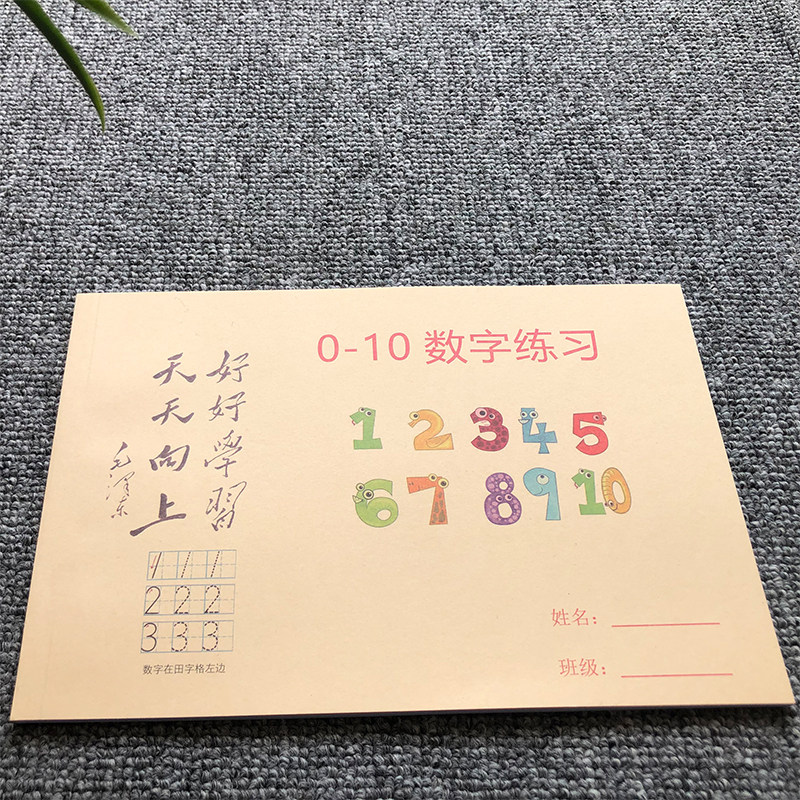 0-10 数字练习
好好學習
天天向上
毛泽东
1 2 3 4 5
6 7 8 9 10
1 1 1
2 2 2
3 3 3
数字在田字格左边
姓名：
班级：